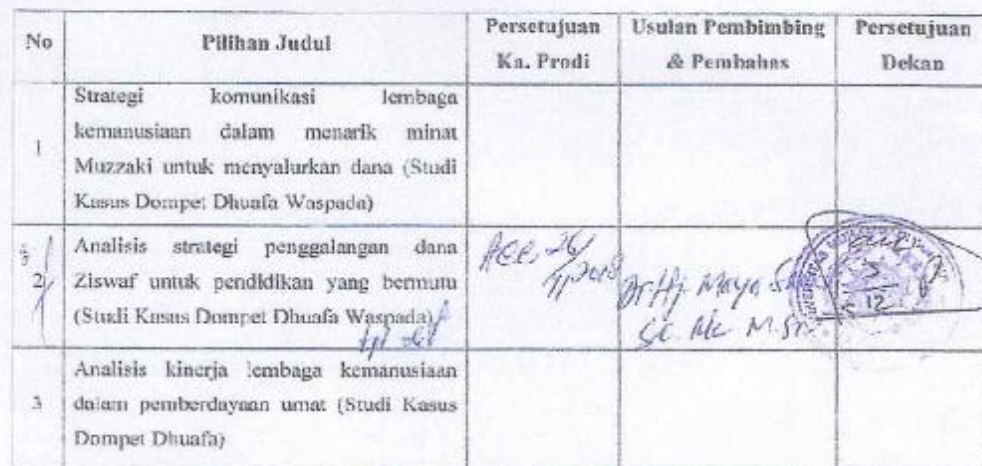 No
Pilihan Judul
Persetujuan
Ka. Prodi
Usulan Pembimbing
& Pembahas
Persetujuan
Dekan
1
Strategi komunikasi lembaga
kemanusiaan dalam menarik minat
Muzzaki untuk menyalurkan dana (Studi
Kasus Dompet Dhuafa Waspada)
2
Analisis strategi penggalangan dana
Ziswaf untuk pendidikan yang bermutu
(Studi Kasus Dompet Dhuafa Waspada)
Acc. 26/
Dr Hj Maya
SE. Ak. M.Si
12
3
Analisis kinerja lembaga kemanusiaan
dalam pemberdayaan umat (Studi Kasus
Dompet Dhuafa)